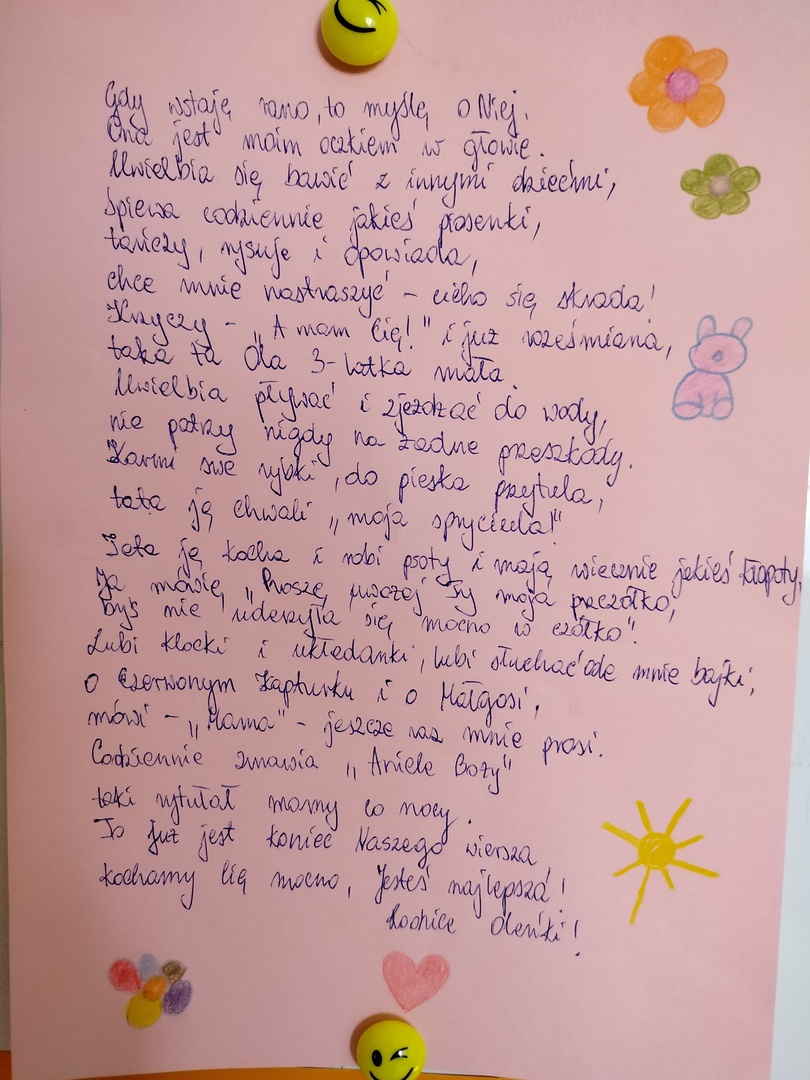 Gdy wstaję rano, to myślę o Niej.
Ona jest moim oczkiem w głowie.
Uwielbia się bawić z innymi dziećmi,
śpiewa codziennie jakieś piosenki,
tańczy, rysuje i opowiada,
chce mnie nastraszyć - cicho się skrada!
Krzyczy - "A mam Cię!" i już roześmiana,
taka ta Ola 3-latka mała.
Uwielbia pływać i zjeżdżać do wody,
nie patrzy nigdy na żadne przeszkody.
Karmi swe rybki, do pieska przytula,
tata ją chwali "moja spryciula!"
Tata ją kocha i robi psoty i mają wiecznie jakieś kłopoty,
Ja mówię, "Proszę uważaj Ty moja pszczółko,
byś nie uderzyła się mocno w czółko".
Lubi klocki i układanki, lubi słuchać ode mnie bajki,
o Czerwonym Kapturku i o Małgosi,
mówi - "Mama" - jeszcze raz mnie prosi.
Codziennie zmawia "Aniele Boży"
taki rytułał mamy co nocy.
To już jest koniec Naszego wiersza,
kochamy Cię mocno, Jesteś najlepsza!
Rodzice Oleńki!